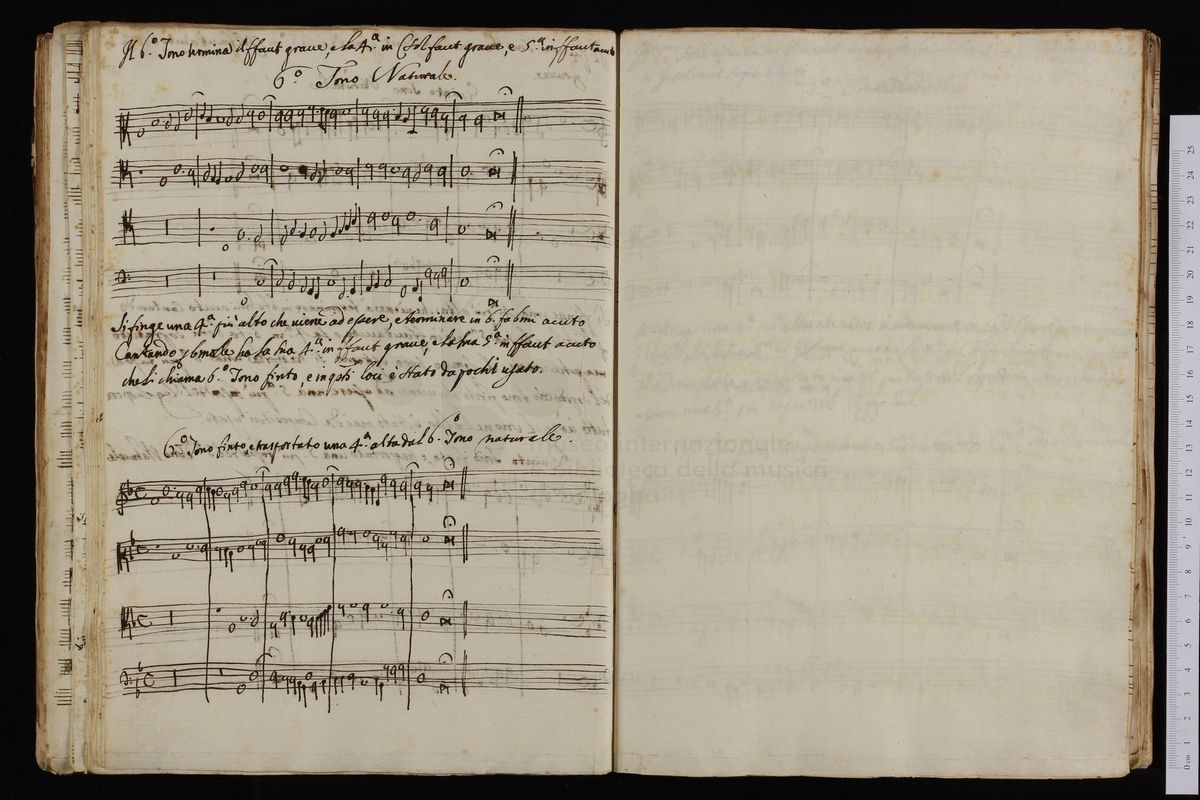 Il 6.º Tono termina in ffaut graue, e la 4.ª in Csolfaut graue, e 5.ª in ffaut acuto
6.º Tono Naturale.
Si finge una 4.ª piu' alto che uiene ad essere, e terminare in b. fa bmi acuto
Cantando p bmole ha la sua 4.ª in ffaut graue, e la sua 5.ª in ffaut acuto
che si chiama 6.º Tono finto, e in qsti loci è stato da pochi usato.
Tono finto e trasportato una 4.ª alta dal 6.º Tono naturale.
internazionale
biblioteca della musica
0 cm 1 2 3 4 5 6 7 8 9 10 11 12 13 14 15 16 17 18 19 20 21 22 23 24 25